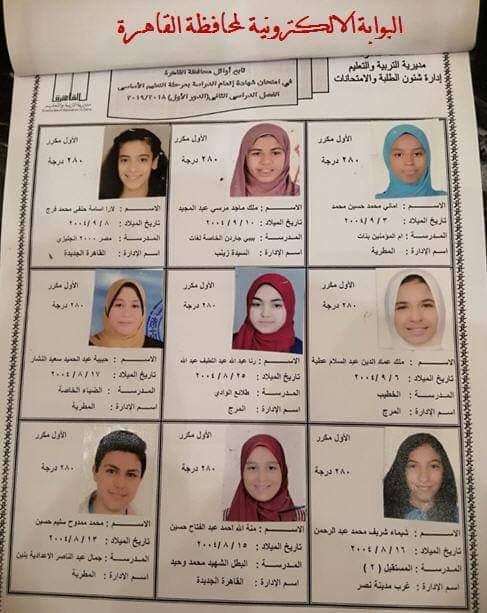 البوابة الالكترونية لمحافظة القاهرة
مديرية التربية والتعليم
إدارة شئون الطلبة والامتحانات
تابع أوائل محافظة القاهرة
في امتحان شهادة إتمام الدراسة بمرحلة التعليم الأساسي
الفصل الدراسي الثاني (الدور الأول) ٢٠١٩/٢٠١٨
القاهرة
الأول مكرر
٢٨٠ درجة
الاســـم : اماني محمد حسين محمد
تاريخ الميلاد : ٣ / ٩ / ٢٠٠٤
المدرسـة : ام المؤمنين بنات
اسم الإدارة : المطرية
الأول مكرر
٢٨٠ درجة
الاســـم : ملك ماجد مرسي عبد المجيد
تاريخ الميلاد : ١٠ / ٩ / ٢٠٠٤
المدرسـة : بيبي جاردن الخاصة لغات
اسم الإدارة : السيدة زينب
الأول مكرر
٢٨٠ درجة
الاســـم : لارا اسامة حنفى محمد فرج
تاريخ الميلاد : ٨ / ٩ / ٢٠٠٤
المدرسـة : مصر ٢٠٠٠ انجليزي
اسم الإدارة : القاهرة الجديدة
الأول مكرر
٢٨٠ درجة
الاســـم : ملك عماد الدين عبد السلام عطية
تاريخ الميلاد : ٦ / ٩ / ٢٠٠٤
المدرسـة : الخطيب
اسم الإدارة : المرج
الأول مكرر
٢٨٠ درجة
الاســـم : رنا عبد الله عبد اللطيف عبد الله
تاريخ الميلاد : ٢٥ / ٨ / ٢٠٠٤
المدرسـة : طلائع الوادي
اسم الإدارة : المرج
الأول مكرر
٢٨٠ درجة
الاســـم : حبيبة عبد الحميد سعيد النشار
تاريخ الميلاد : ١٧ / ٨ / ٢٠٠٤
المدرسـة : الضياء الخاصة
اسم الإدارة : المطرية
الأول مكرر
٢٨٠ درجة
الاســـم : شيماء شريف محمد عبد الرحمن
تاريخ الميلاد : ١٦ / ٨ / ٢٠٠٤
المدرسـة : المستقبل ( ٢ )
اسم الإدارة : غرب مدينة نصر
الأول مكرر
٢٨٠ درجة
الاســـم : منة الله احمد عبد الفتاح حسين
تاريخ الميلاد : ١٥ / ٨ / ٢٠٠٤
المدرسـة : البطل الشهيد محمد وحيد
اسم الإدارة : القاهرة الجديدة
الأول مكرر
٢٨٠ درجة
الاســـم : محمد ممدوح سليم حسين
تاريخ الميلاد : ١٣ / ٨ / ٢٠٠٤
المدرسـة : جمال عبد الناصر الاعدادية بنين
اسم الإدارة : المطرية